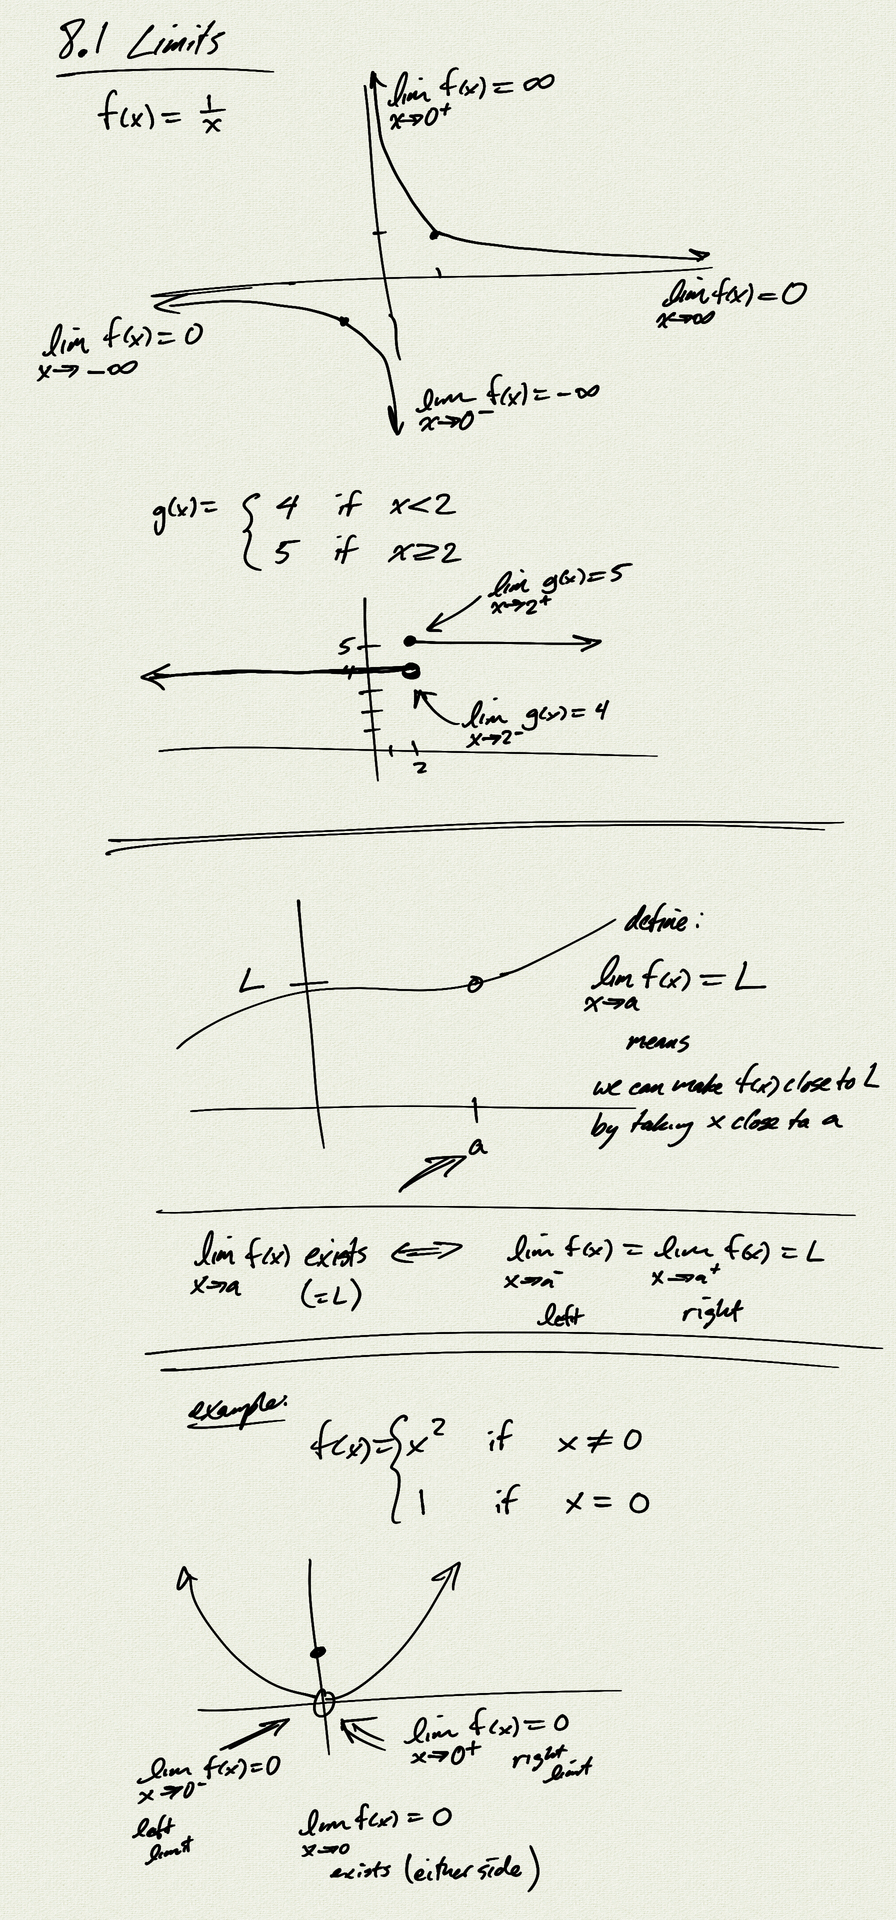 8.1 Limits
f(x) = 1/x
lim f(x) = ∞
x→0⁺
lim f(x) = 0
x→∞
lim f(x) = 0
x→ -∞
lim f(x) = -∞
x→0⁻
g(x) = { 4 if x<2
5 if x≥2
lim g(x) = 5
x→2⁺
5
4
lim g(x) = 4
x→2⁻
2
define:
L
lim f(x) = L
x→a
means
we can make f(x) close to L
by taking x close to a
a
lim f(x) exists ⟺ lim f(x) = lim f(x) = L
x→a (=L) x→a⁻ x→a⁺
left right
example:
f(x) = { x² if x ≠ 0
1 if x = 0
lim f(x) = 0
x→0⁺ right
limit
lim f(x) = 0
x→0⁻
left
limit
lim f(x) = 0
x→0
exists (either side)